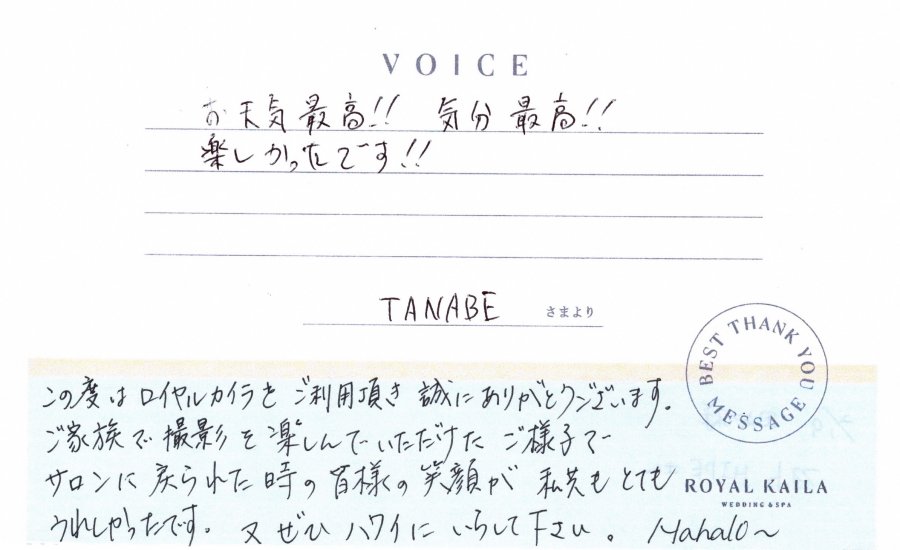 VOICE
お天気最高!! 気分最高!!
楽しかったです!!
TANABE さまより
BEST THANK YOU MESSAGE
この度はロイヤルカイラをご利用頂き誠にありがとうございます。
ご家族で撮影を楽しんでいただけたご様子で
サロンに戻られた時の皆様の笑顔が私共もとても
うれしかったです。又ぜひハワイにいらして下さい。Mahalo〜
ROYAL KAILA
WEDDING & SPA